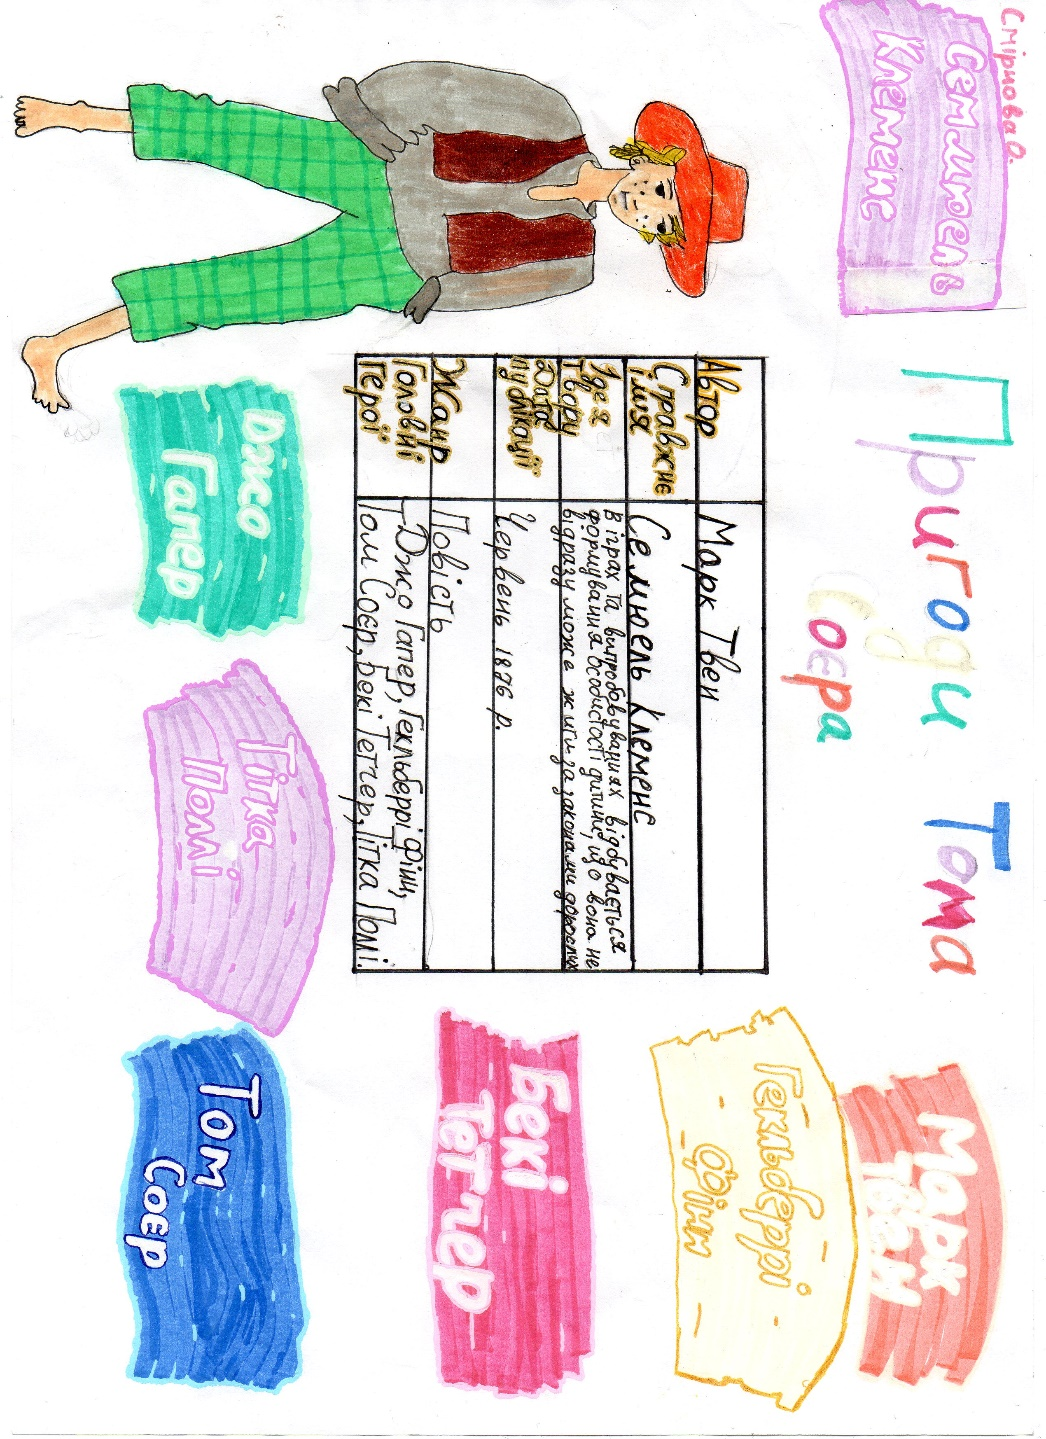 Смірнова О.
Семмюель
Клеменс
Пригоди Тома
Соєра
Марк
Твен
Автор
Марк Твен
Справжнє
ім'я
Семюель Клеменс
Ідея
твору
В іграх та випробовуваннях відбувається
формування особистості дитини, що вона не
відразу може жити за законами дорослих
Дата
публікації
Червень 1876 р.
Жанр
Повість
Головні
герої
Джо Гапер, Гекльберрі Фінн,
Том Соєр, Бекі Тетчер, Тітка Полі.
Гекльберрі
Фінн
Бекі
Тетчер
Джо
Гапер
Тітка
Поллі
Том
Соєр